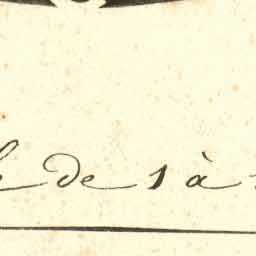 de 1 à